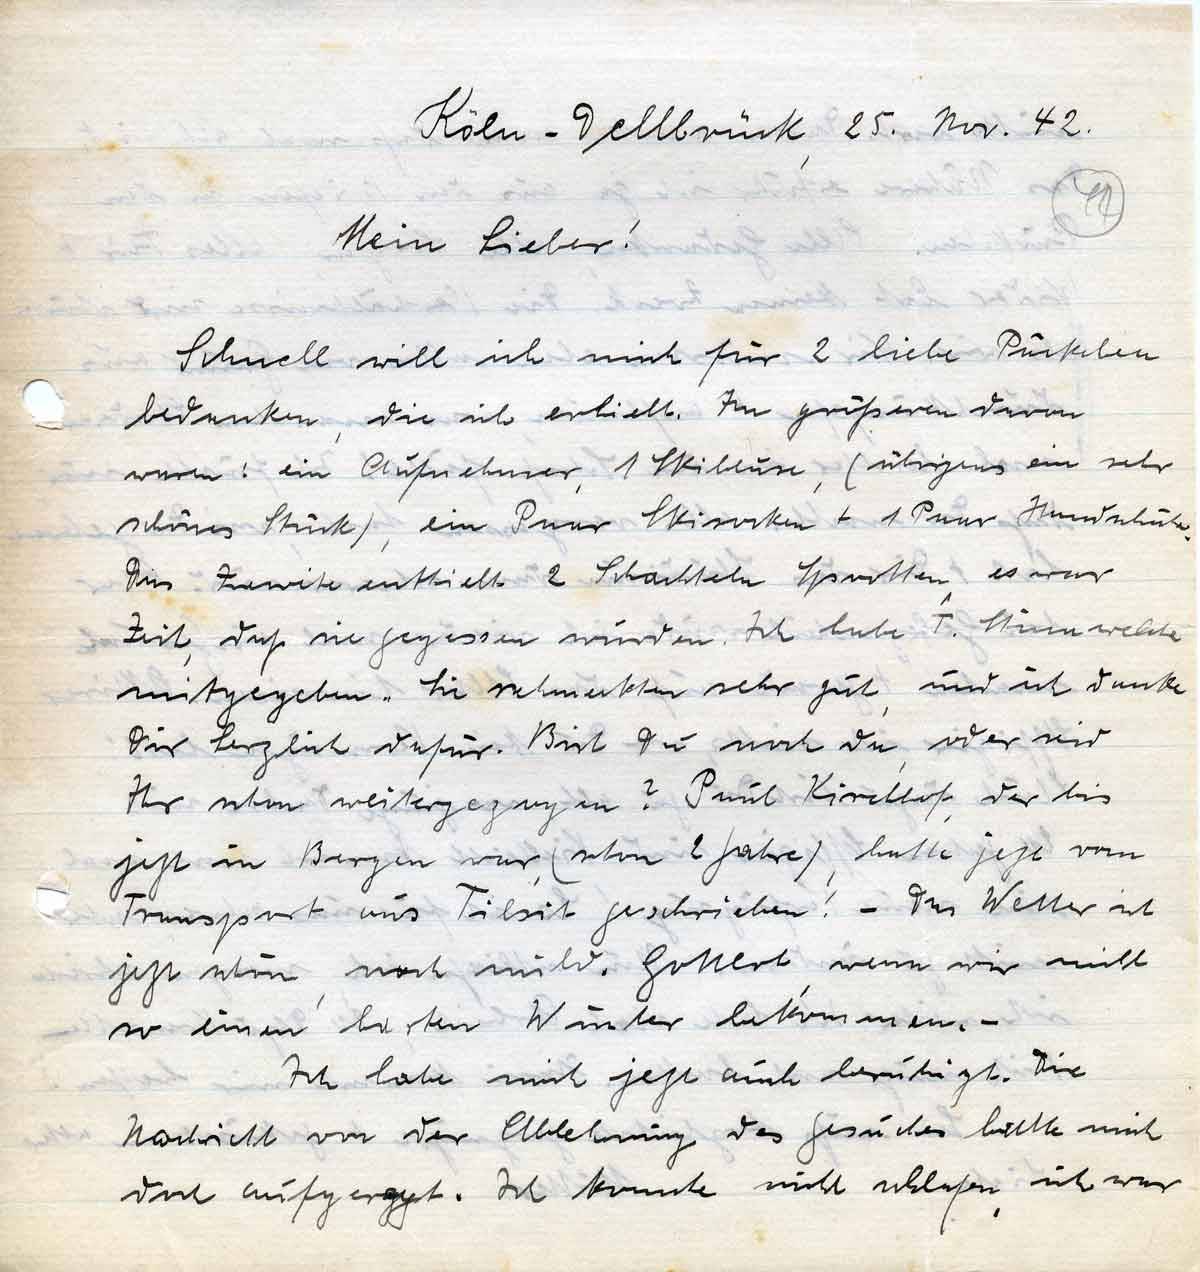 Köln-Dellbrück, 25. Nov. 42.
Mein Lieber!
Schnell will ich mich für 2 liebe Päckchen
bedanken, die ich erhielt. Im größeren davon
waren: ein Aufnehmer, 1 Skibluse, (übrigens ein sehr
schönes Stück), ein Paar Skisocken + 1 Paar Handschuhe.
Das Zweite enthielt 2 Schachteln Sprotten, es war
Zeit, daß sie gegessen wurden. Ich habe T. welche
mitgegeben. Sie schmeckten sehr gut, und ich danke
Dir herzlich dafür. Bist Du noch da, oder seid
Ihr schon weitergezogen? Paul Kirchhof, der bis
jetzt in Bergen war, (schon 2 Jahre), hatte jetzt vom
Transport aus Tilsit geschrieben! – Das Wetter ist
jetzt schön, noch mild. Gottlob, wenn wir nicht
so einen harten Winter bekommen. –
Ich habe mich jetzt auch beruhigt. Die
Nachricht von der Ablehnung des Gesuches hatte mich
doch aufgeregt. Ich konnte nicht schlafen, ich war